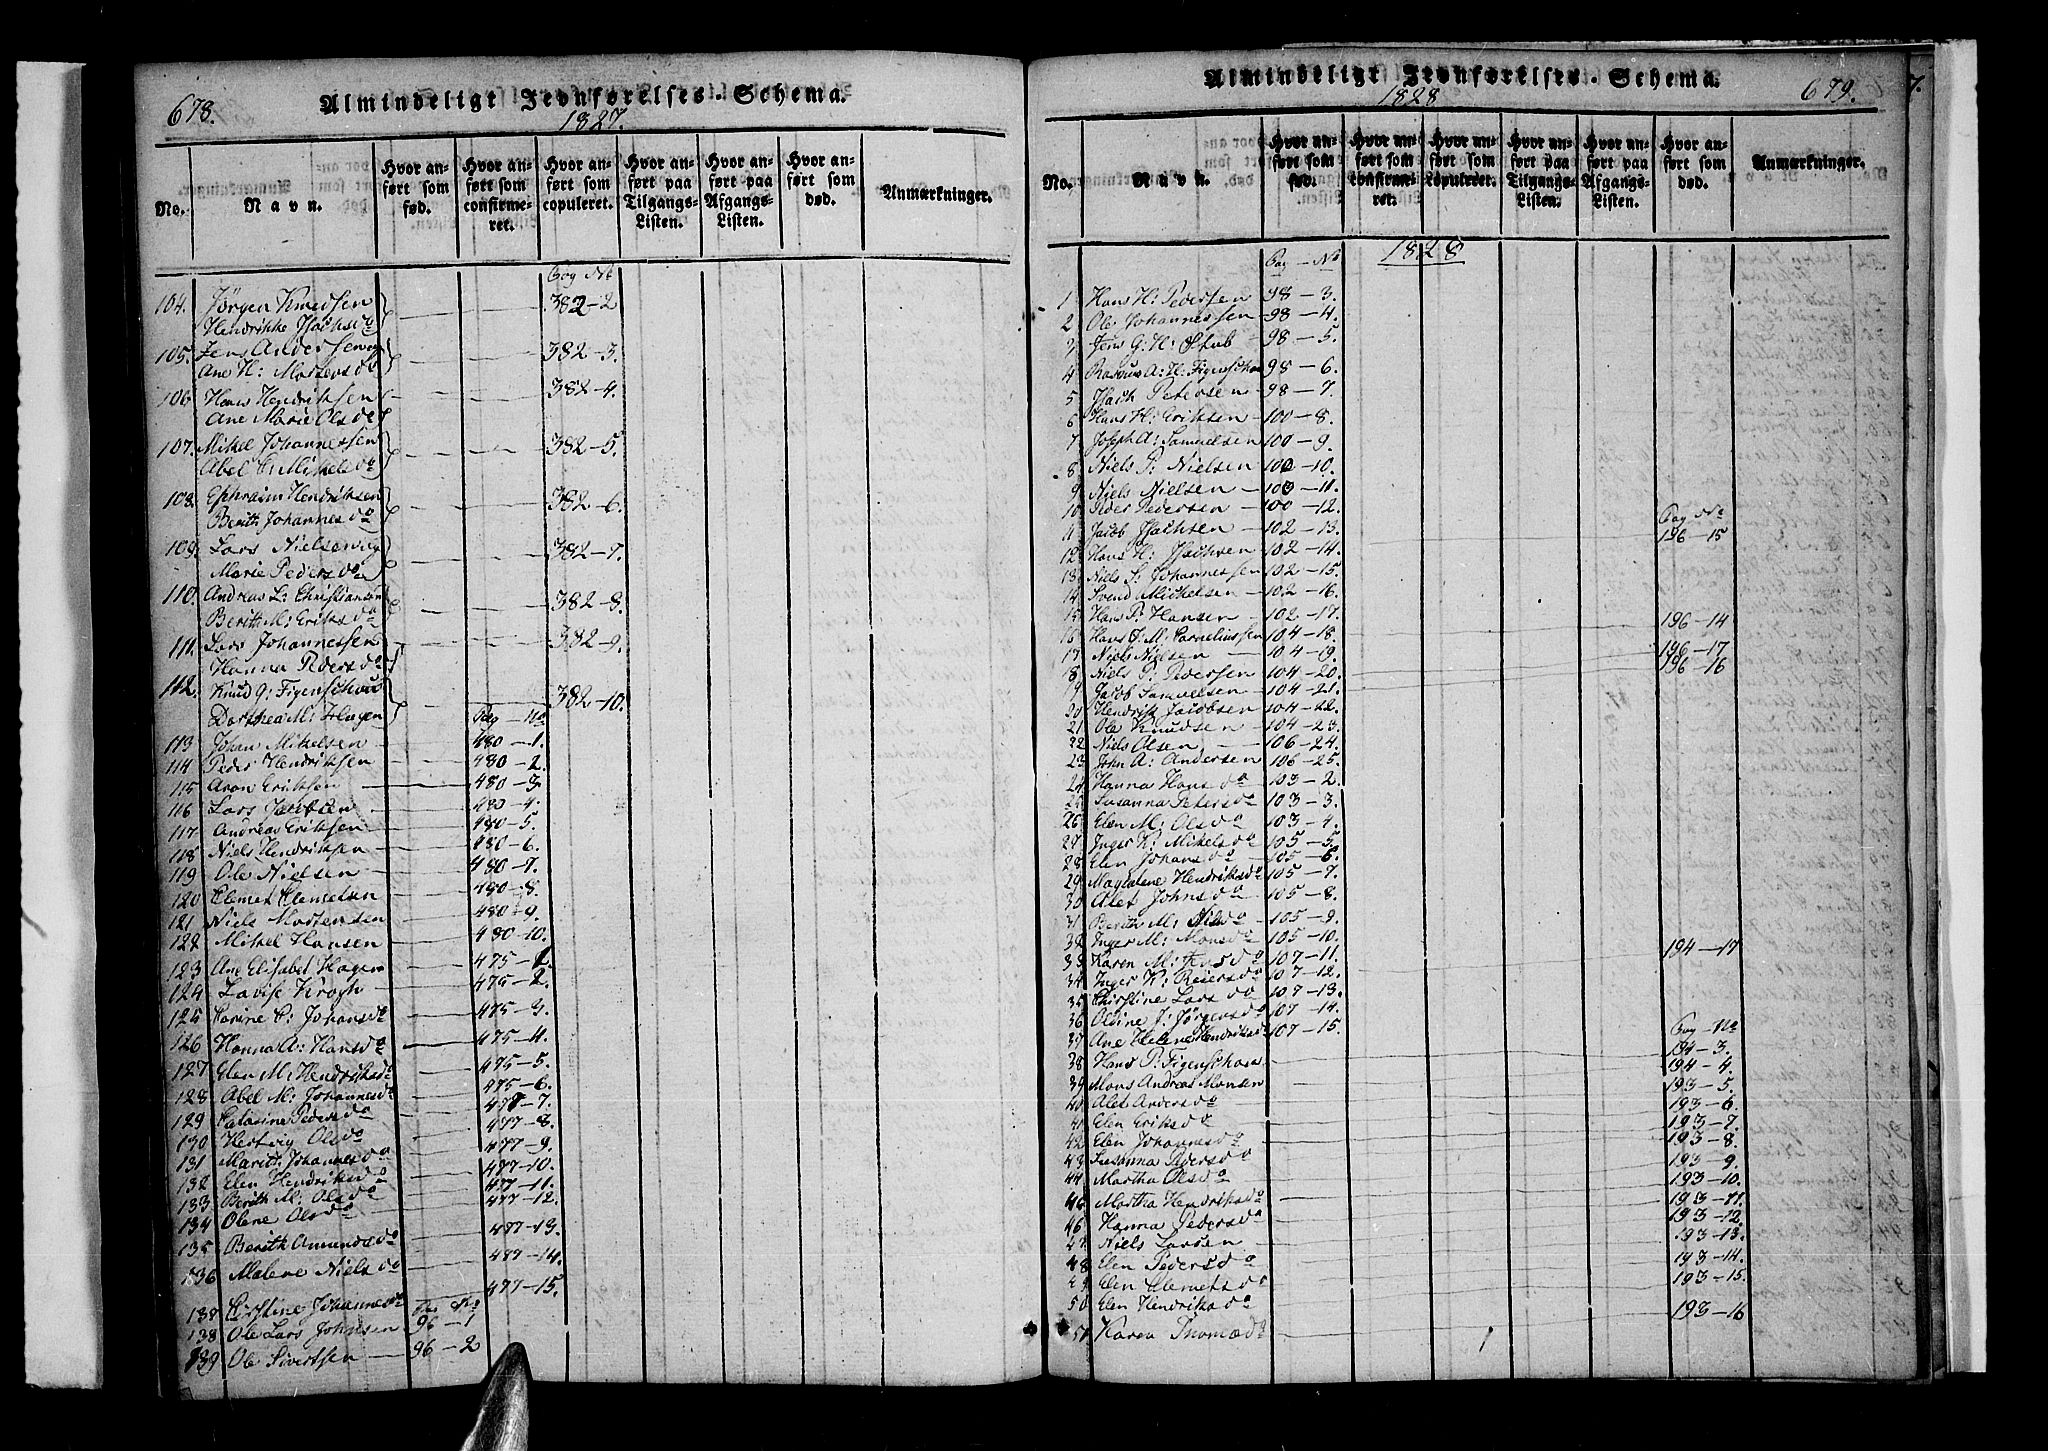 678.
Almindeligt Jevnførelses-Schema.
1827.
No.
Navn.
Hvor anført som fød.
Hvor anført som confirmeret.
Hvor anført som copuleret.
Hvor anført paa Tilgangs-Listen.
Hvor anført paa Afgangs-Listen.
Hvor anført som død.
Anmærkninger.
Pag No
104. Jörgen Knudsen 382-2
Hendrikke Isachsdo
105. Jens Andersen 382-3.
Ane H: Mortensdo
106 Hans Hendriksen 382-4.
Ane Marie Olsdo
107. Mikel Johannessen 382-5.
Abel C: Mikelsdo
108. Ephraim Hendriksen 382-6.
Berith Johannesdo
109. Lars Nielsen 382-7.
Marie Pedersdo
110. Andreas L: Christiansen 382-8.
Berith M: Eriksdo
111. Lars Johannessen 382-9.
Hanna Pedersdo
112. Knud G: Figenschou 382-10.
Dorthea M: Hagen Pag - No
113 Johan Mikelsen 480-1.
114 Peder Hendriksen 480-2.
115 Aron Eriksen 480-3
116 Lars Jacobsen 480-4.
117 Andreas Eriksen 480-5.
118 Niels Hendriksen 480-6.
119 Ole Nielsen 480-7.
120 Clemet Clemetsen 480-8.
121 Niels Mortensen 480-9.
122 Mikel Hansen 480-10.
123 Ane Elisabet Hagen 475-1.
124 Lovise Krogh 475-2.
125 Carine C: Johansdo 475-3.
126 Hanna A: Hansdo 475-4.
127 Elen M: Hendriksdo 475-5.
128 Abel M: Johannesdo 475-6.
129 Catarine Pedersdo 477-7.
130 Hertvig Olsdo 477-8.
131 Marith Johannesdo 477-9.
132 Elen Hendriksdo 477-10.
133 Berith M: Olsdo 477-11.
134 Olene Olsdo 477-12.
135 Berith Amundsdo 477-13.
136 Malene Nielsdo 487-14.
137 Kirstine Johannesdo 477-15.
Pag No
138 Ole Lars Johnsen 96-1
139 Ole Sivertsen 96-2
Almindeligt Jevnførelses-Schema.
1828
679.
No.
Navn.
Hvor anført som fød.
Hvor anført som confirmeret.
Hvor anført som copuleret.
Hvor anført paa Tilgangs-Listen.
Hvor anført paa Afgangs-Listen.
Hvor anført som død.
Anmærkninger.
Pag - No 1828
1 Hans H: Pedersen 98-3.
2 Ole Johannessen 98-4.
3 Jens G: H: Stub 98-5.
4 Rasmus A: H: Figenschou 98-6.
5 Isach Petersen 98-7.
6 Hans H: Eriksen 100-8.
7 Joseph A: Samuelsen 100-9.
8 Niels P: Nielsen 100-10.
9 Niels Nielsen 100-11.
10 Peder Pedersen 100-12. Pag No
11 Jacob Isachsen 102-13. 196-15
12 Hans H: Isachsen 102-14.
13 Niels S: Johannessen 102-15.
14 Svend Mickelsen 102-16.
15 Hans P: Hansen 102-17.
16 Hans J. M: Corneliussen 104-18. 196-14
17 Niels Nielsen 104-19. 196-17
18 Niels P: Pedersen 104-20. 196-16
19 Jacob Samuelsen 104-21.
20 Hendrik Jacobsen 104-22.
21 Ole Knudsen 104-23.
22 Niels Olsen 106-24.
23 John A: Andersen 106-25.
24 Hanna Hansdo 103-2.
25 Susanna Petersdo 103-3.
26 Elen M: Olsdo 103-4.
27 Inger K: Mikelsdo 105-5.
28 Elen Johansdo 105-6.
29 Magdalene Hendriksdo 105-7.
30 Alet Johnsdo 105-8.
31 Berith M: Nielsdo 105-9.
32 Inger M: Monsdo 105-10. 194-17
33 Karen M: 107-11.
34 Inger K: Reiersdo 107-12.
35 Christine Larsdo 107-13.
36 Olvine J: Jörgensdo 107-14. Pag - No
37 Ane Helene Hendriksdo 107-15.
38 Hans P: Figenschou 194-3.
39 Mons Andreas Monsen 194-4.
40 Alet Andersdo 193-5.
41 Elen Eriksdo 193-6.
42 Elen Johannesdo 193-7.
43 Susanna Pedersdo 193-8.
44 Martha Olsdo 193-9.
45 Martha Hendriksdo 193-10.
46 Hanna Pedersdo 193-11.
47 Niels Larsen 193-12.
48 Elen Pedersdo 193-13.
49 Elen Clemetsdo 193-14.
50 Elen Hendriksdo 193-15.
51 Karen Thomædo 193-16